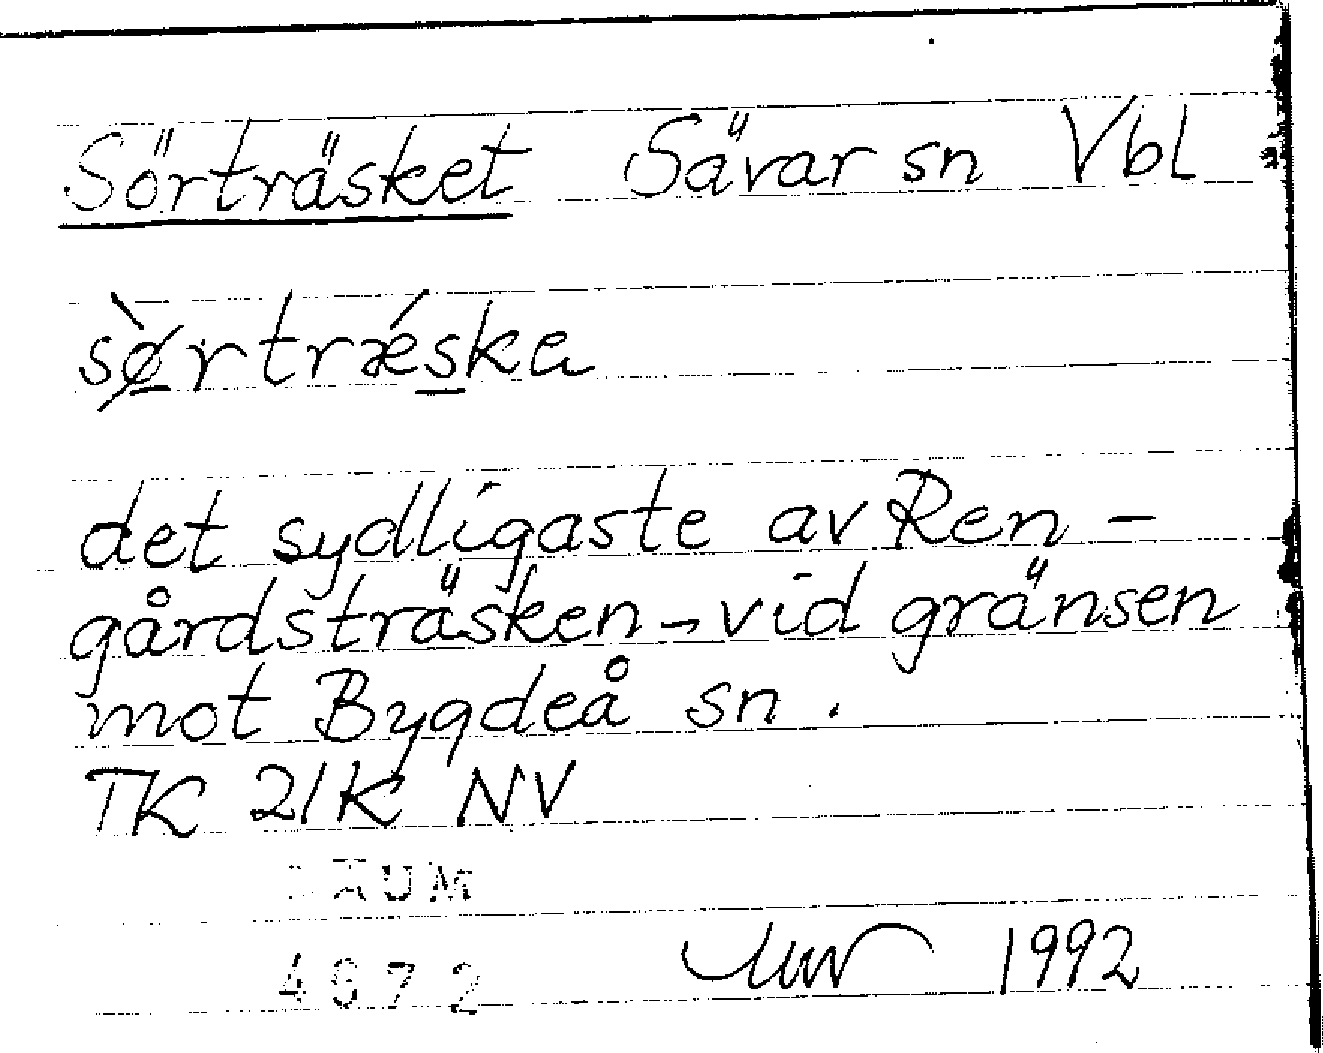 Sörträsket Sävar sn Vbl
sø̀rtrǽska
det sydligaste av Ren-
gårdsträsken - vid gränsen
mot Bygdeå sn.
TK 21K NV
DAUM
1992